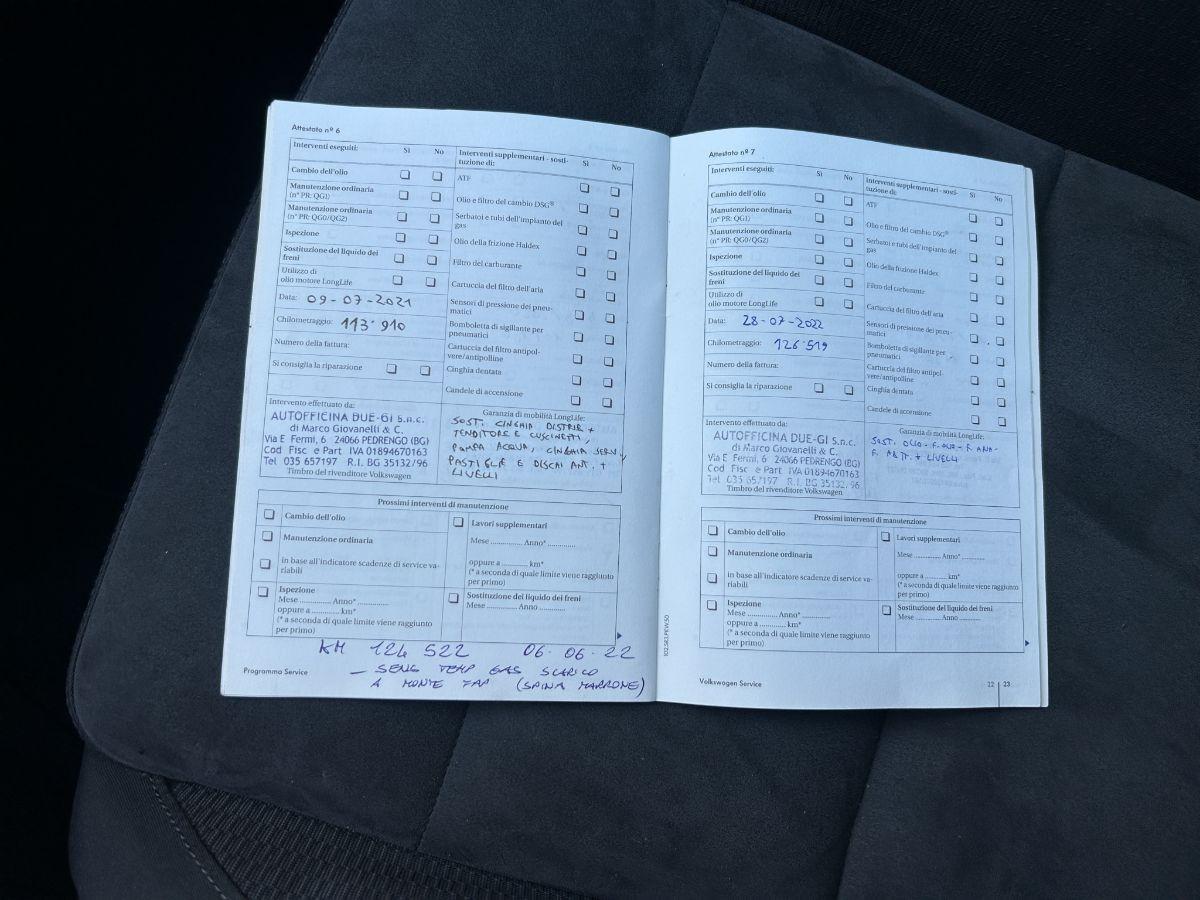 Attestato nº 6
Interventi eseguiti:
Sì
No
Cambio dell'olio
Manutenzione ordinaria
(nº PR: QG1)
Manutenzione ordinaria
(nº PR: QG0/QG2)
Ispezione
Sostituzione del liquido dei
freni
Utilizzo di
olio motore LongLife
Data: 09-07-2021
Chilometraggio: 113·910
Numero della fattura:
Si consiglia la riparazione
Interventi supplementari - sosti-
tuzione di:
Sì
No
ATF
Olio e filtro del cambio DSG®
Serbatoi e tubi dell'impianto del
gas
Olio della frizione Haldex
Filtro del carburante
Cartuccia del filtro dell'aria
Sensori di pressione dei pneu-
matici
Bomboletta di sigillante per
pneumatici
Cartuccia del filtro antipol-
vere/antipolline
Cinghia dentata
Candele di accensione
Intervento effettuato da:
AUTOFFICINA DUE-GI S.n.c.
di Marco Giovanelli & C.
Via E Fermi, 6 24066 PEDRENGO (BG)
Cod Fisc e Part IVA 01894670163
Tel 035 657197 R.I. BG 35132/96
Timbro del rivenditore Volkswagen
Garanzia di mobilità LongLife:
SOST. CINGHIA DISTRIB +
TENDITORE E CUSCINETTI,
POMPA ACQUA, CINGHIA SERV
PASTIGLIE E DISCHI ANT. +
LIVELLI
Prossimi interventi di manutenzione
Cambio dell'olio
Manutenzione ordinaria
in base all'indicatore scadenze di service va-
riabili
Ispezione
Mese ............ Anno* ............
oppure a ............ km*
(* a seconda di quale limite viene raggiunto
per primo)
Lavori supplementari
Mese ............ Anno* ............
oppure a ............ km*
(* a seconda di quale limite viene raggiunto
per primo)
Sostituzione del liquido dei freni
Mese ............ Anno ............
KM 124 522 06·06·22
— SENS TEMP GAS SCARICO
A MONTE FAP (SPINA MARRONE)
Programma Service
Attestato nº 7
Interventi eseguiti:
Sì
No
Cambio dell'olio
Manutenzione ordinaria
(nº PR: QG1)
Manutenzione ordinaria
(nº PR: QG0/QG2)
Ispezione
Sostituzione del liquido dei
freni
Utilizzo di
olio motore LongLife
Data: 28-07-2022
Chilometraggio: 126·519
Numero della fattura:
Si consiglia la riparazione
Interventi supplementari - sosti-
tuzione di:
Sì
No
ATF
Olio e filtro del cambio DSG®
Serbatoi e tubi dell'impianto del
gas
Olio della frizione Haldex
Filtro del carburante
Cartuccia del filtro dell'aria
Sensori di pressione dei pneu-
matici
Bomboletta di sigillante per
pneumatici
Cartuccia del filtro antipol-
vere/antipolline
Cinghia dentata
Candele di accensione
Intervento effettuato da:
AUTOFFICINA DUE-GI S.n.c.
di Marco Giovanelli & C.
Via E Fermi, 6 24066 PEDRENGO (BG)
Cod Fisc e Part IVA 01894670163
Tel 035 657197 R.I. BG 35132/96
Timbro del rivenditore Volkswagen
Garanzia di mobilità LongLife:
SOST. OLIO -
+ LIVELLI
Prossimi interventi di manutenzione
Cambio dell'olio
Manutenzione ordinaria
in base all'indicatore scadenze di service va-
riabili
Ispezione
Mese ............ Anno* ............
oppure a ............ km*
(* a seconda di quale limite viene raggiunto
per primo)
Lavori supplementari
Mese ............ Anno* ............
oppure a ............ km*
(* a seconda di quale limite viene raggiunto
per primo)
Sostituzione del liquido dei freni
Mese ............ Anno ............
Volkswagen Service
22 | 23